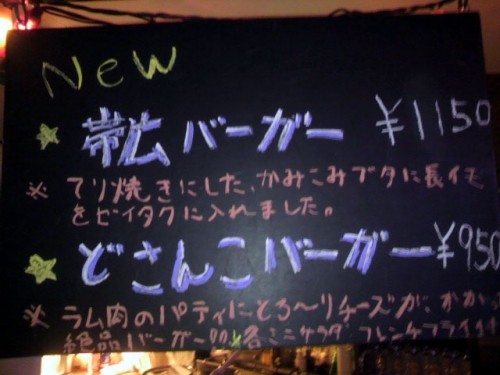 New
☆ 帯広バーガー ¥1150
※ てり焼きにした、かみこみブタに長イモ
をゼイタクに入れました。
☆ どさんこバーガー ¥950
※ ラム肉のパティにとろ〜りチーズが、かかっ
絶品バーガー!! 各ミニサラダ フレンチフライ付